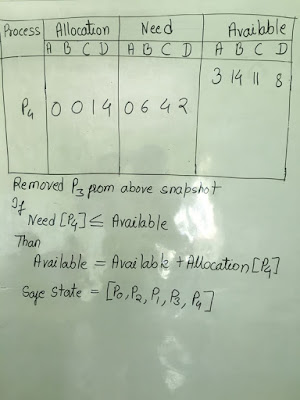 Process Allocation Need Available
A B C D A B C D A B C D
3 14 11 8
P4 0 0 1 4 0 6 4 2
Removed P3 from above snapshot
If
Need [P4] ≤ Available
Than
Available = Available + Allocation [P4]
Safe State = [P0, P2, P1, P3, P4]